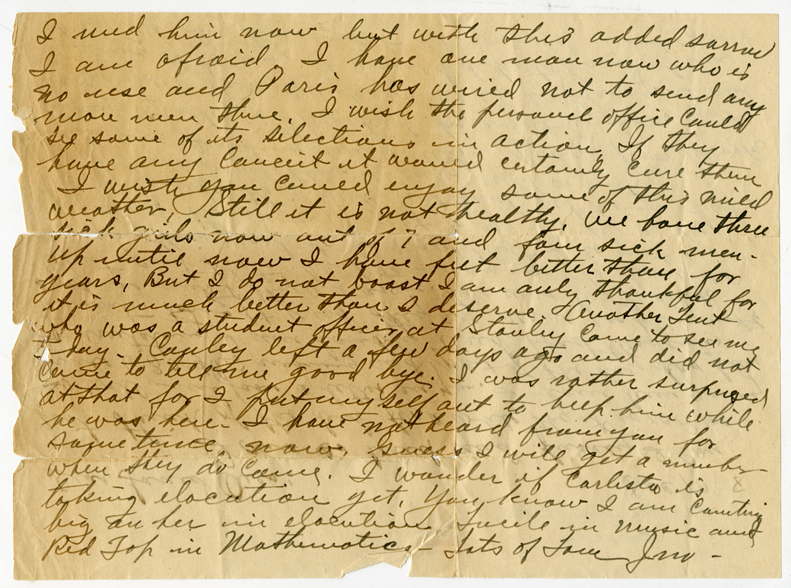 I need him now but with this added sorrow
I am afraid. I have one man now who is
no use and Paris has wired not to send any
more men there. I wish the personel office could
see some of its selections in action. If they
have any conceit it would certainly cure them
I wish you could enjoy some of this mild
weather. Still it is not healthy. We have three
sick girls now out of 7 and four sick men.
Up until now I have felt better than for
years, But I do not boast I am only thankful for
it is much better than I deserve. Another Lieut
who was a student officer at Stanley came to see me
today. Copley left a few days ago and did not
come to tell me good bye. I was rather surprised
at that for I put myself out to help him while
he was here. I have not heard from you for
some time, now. Guess I will get a number
when they do come. I wonder if Carlista is
taking elocution yet. You know I am counting
big on her in elocution Lucile in music and
Red Top in Mathematics - Lots of Love Jno -